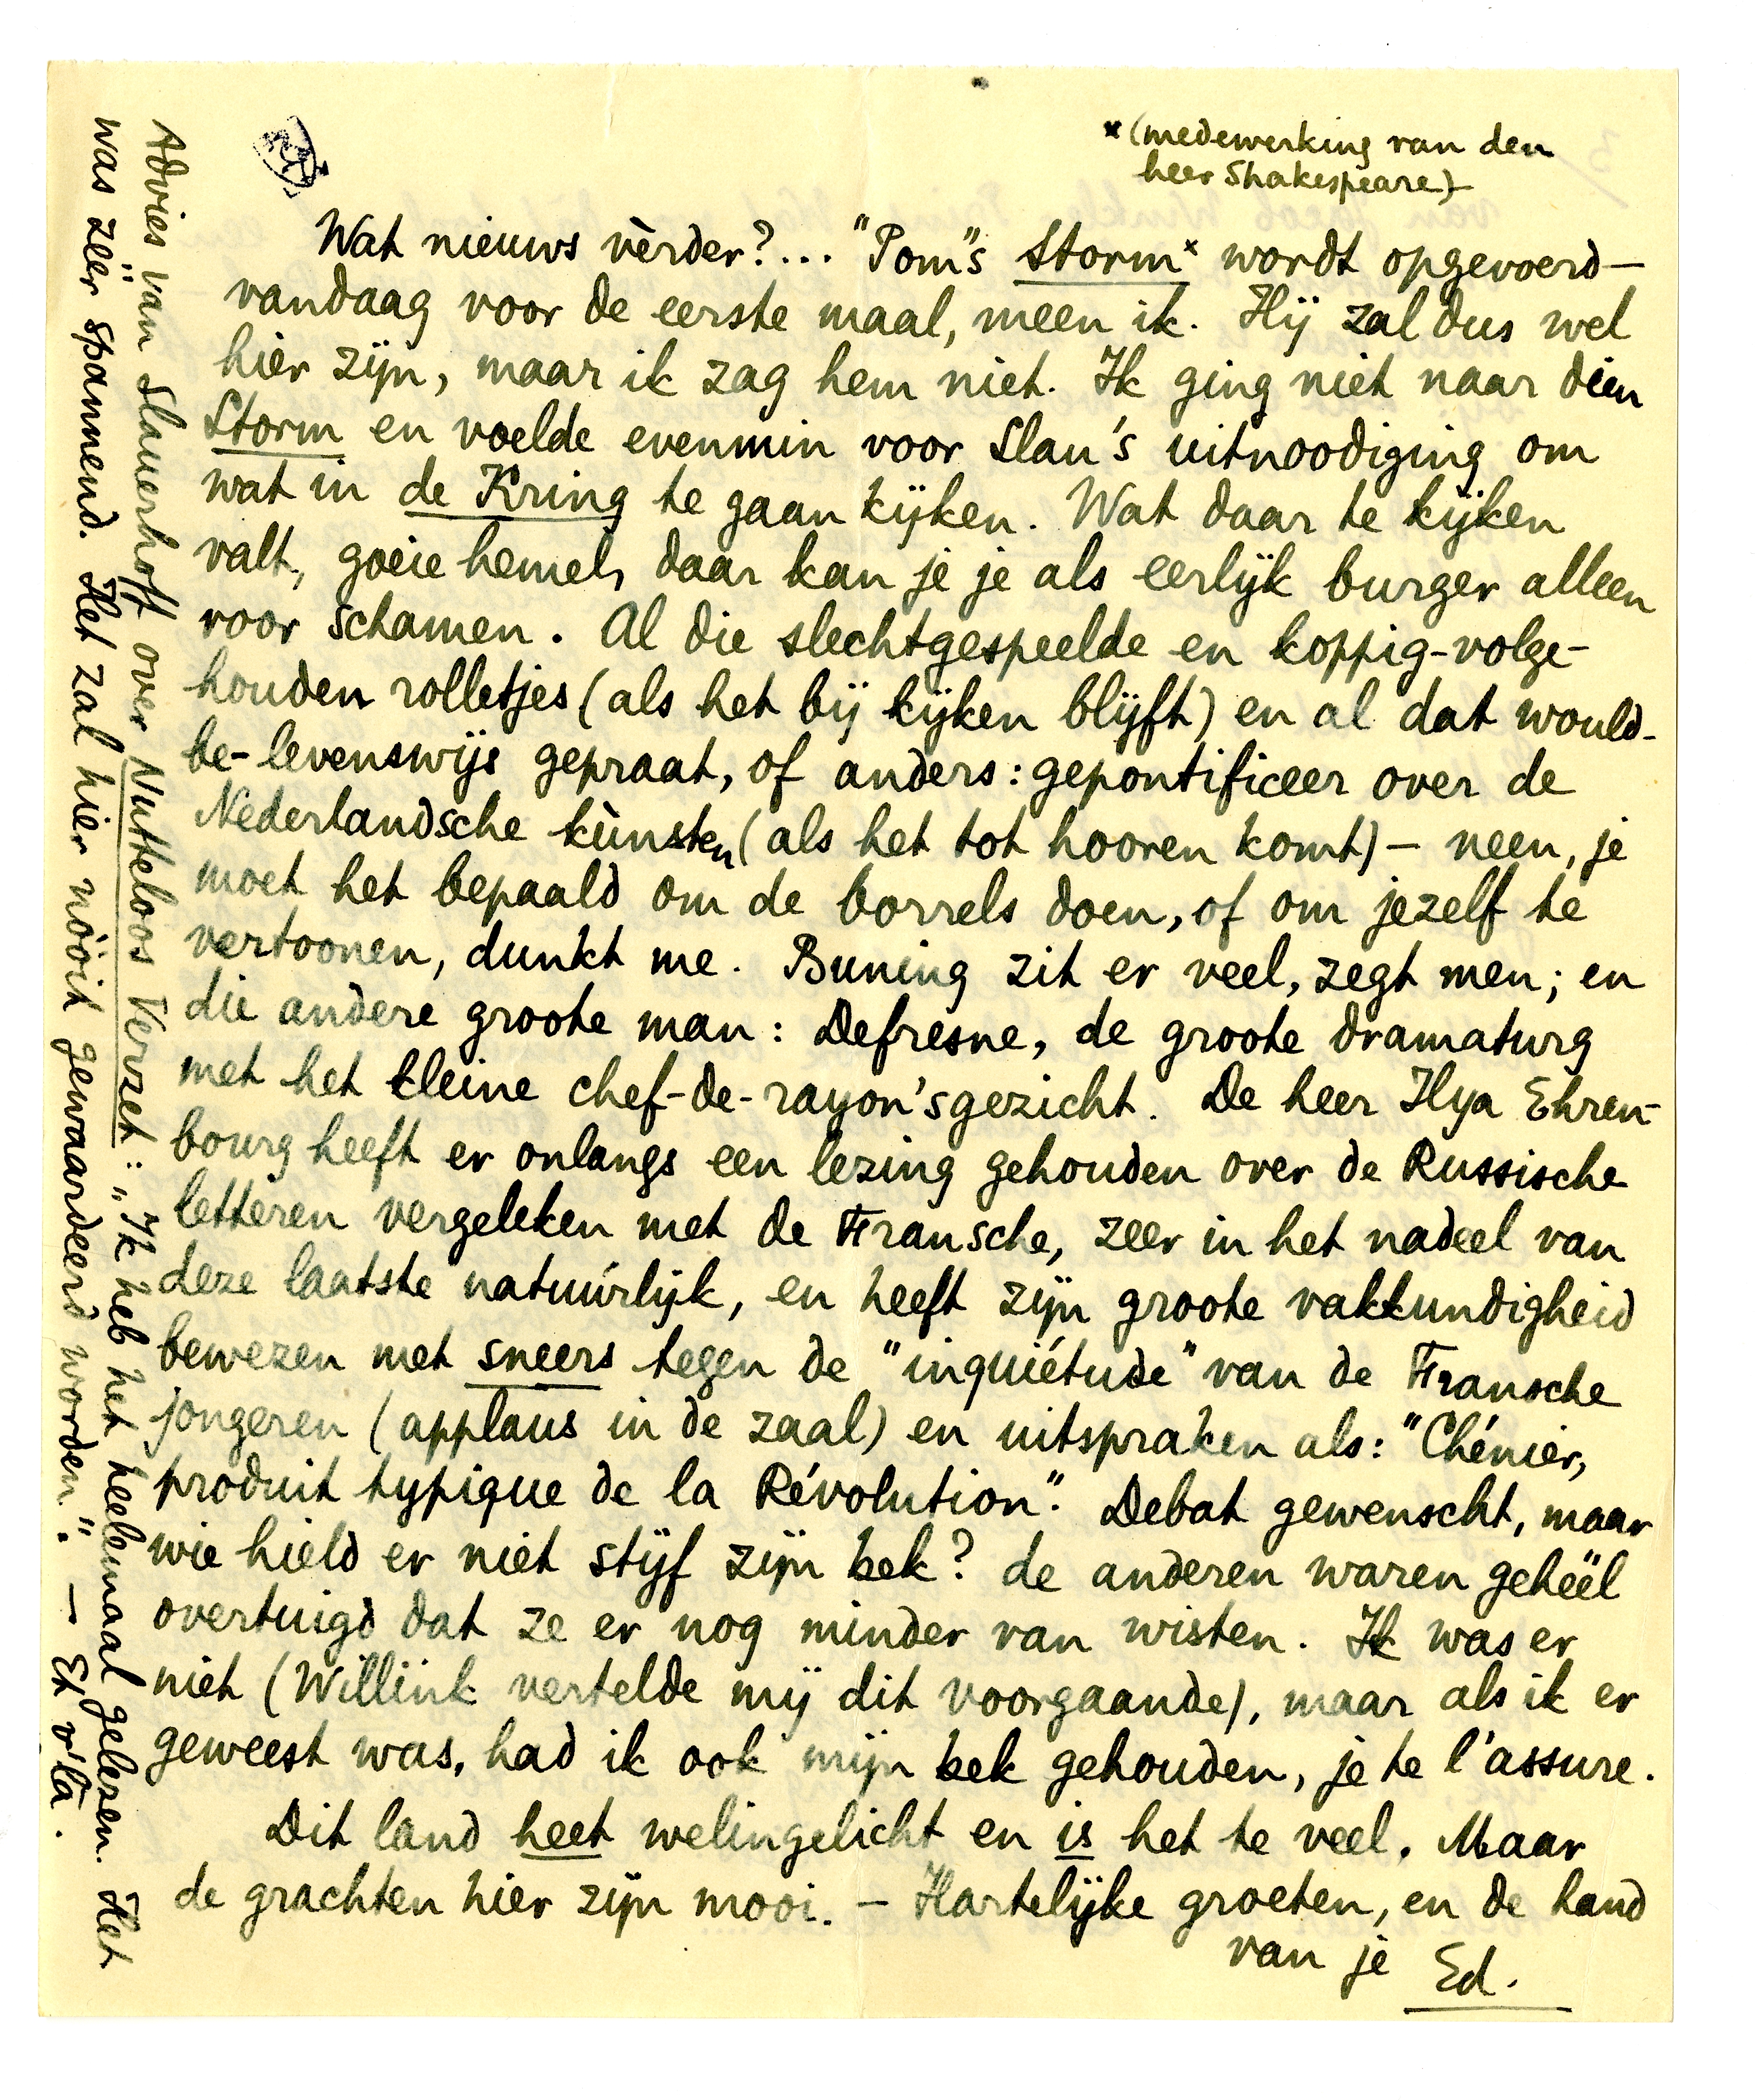 *(medewerking van den
heer Shakespeare)
Wat nieuws vèrder?... "Pom"s Storm* wordt opgevoerd—
vandaag voor de eerste maal, meen ik. Hij zal dus wel
hier zijn, maar ik zag hem niet. Ik ging niet naar dien
Storm en voelde evenmin voor Slau's uitnoodiging om
wat in de Kring te gaan kijken. Wat daar te kijken
valt, goeie hemel, daar kan je je als eerlijk burger alleen
voor schamen. Al die slechtgespeelde en koppig-volge-
houden rolletjes (als het bij kijken blijft) en al dat would-
be-levenswijs gepraat, of anders: gepontificeer over de
Nederlandsche kùnsten (als het tot hooren komt) — neen, je
moet het bepaald om de borrels doen, of om jezelf te
vertoonen, dunkt me. Buning zit er veel, zegt men; en
die andere groote man: Defresne, de groote dramaturg
met het kleine chef-de-rayon'sgezicht. De heer Ilya Ehren-
bourg heeft er onlangs een lezing gehouden over de Russische
letteren vergeleken met de Fransche, zeer in het nadeel van
deze laatste natuúrlijk, en heeft zijn groote vakkundigheid
bewezen met sneers tegen de "inquiétude" van de Fransche
jongeren (applaus in de zaal) en uitspraken als: "Chénier,
produit typique de la Révolution". Debat gewenscht, maar
wie hield er niet stijf zijn bek? de anderen waren gehéél
overtuigd dat ze er nog minder van wisten. Ik was er
niet (Willink vertelde mij dit voorgaande), maar als ik er
geweest was, had ik ook mijn bek gehouden, je te l'assure.
Dit land heet welingelicht en is het te veel. Maar
de grachten hier zijn mooi. — Hartelijke groeten, en de hand
van je Ed.
Advies van Slauerhoff over Nutteloos Verzet: „Ik heb het heelemaal gelezen. Het
was zéér spannend. Het zal hier nóóit gewaardeerd worden". — Et v'là.